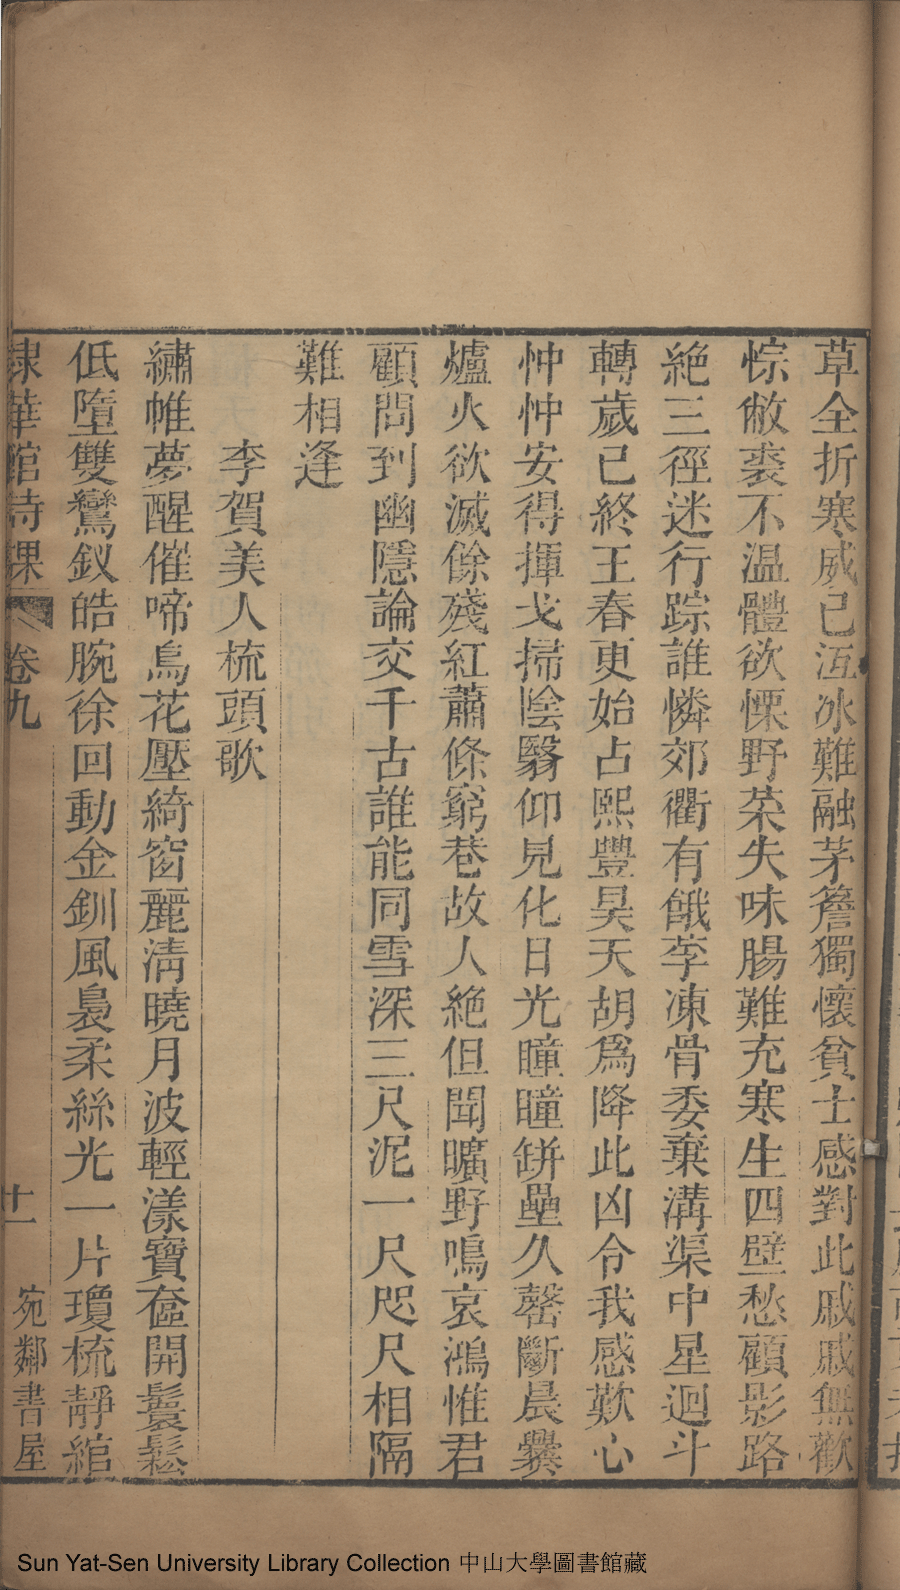 草全折寒威已沍冰難融茅簷獨懷貧士感對此戚戚無歡
悰敝裘不温體欲慄野菜失味腸難充寒生四壁愁顧影路
絶三徑迷行踪誰憐郊衢有餓莩凍骨委棄溝渠中星迴斗
轉歲已終王春更始占熙豐昊天胡爲降此凶令我感歎心
忡忡安得揮戈掃陰翳仰見化日光曈曈缾壘久罄斷晨爨
爐火欲滅餘殘紅蕭條窮巷故人絶但聞曠野鳴哀鴻惟君
顧問到幽隱論交千古誰能同雪深三尺泥一尺咫尺相隔
難相逢
李賀美人梳頭歌
繡帷夢醒催啼鳥花壓綺窗麗淸曉月波輕漾寶奩開鬟鬆
低墮雙鸞釵皓腕徐回動金釧風裊柔絲光一片瓊梳靜綰
棣華館詩課 卷九 十一 宛鄰書屋
Sun Yat-Sen University Library Collection 中山大學圖書館藏